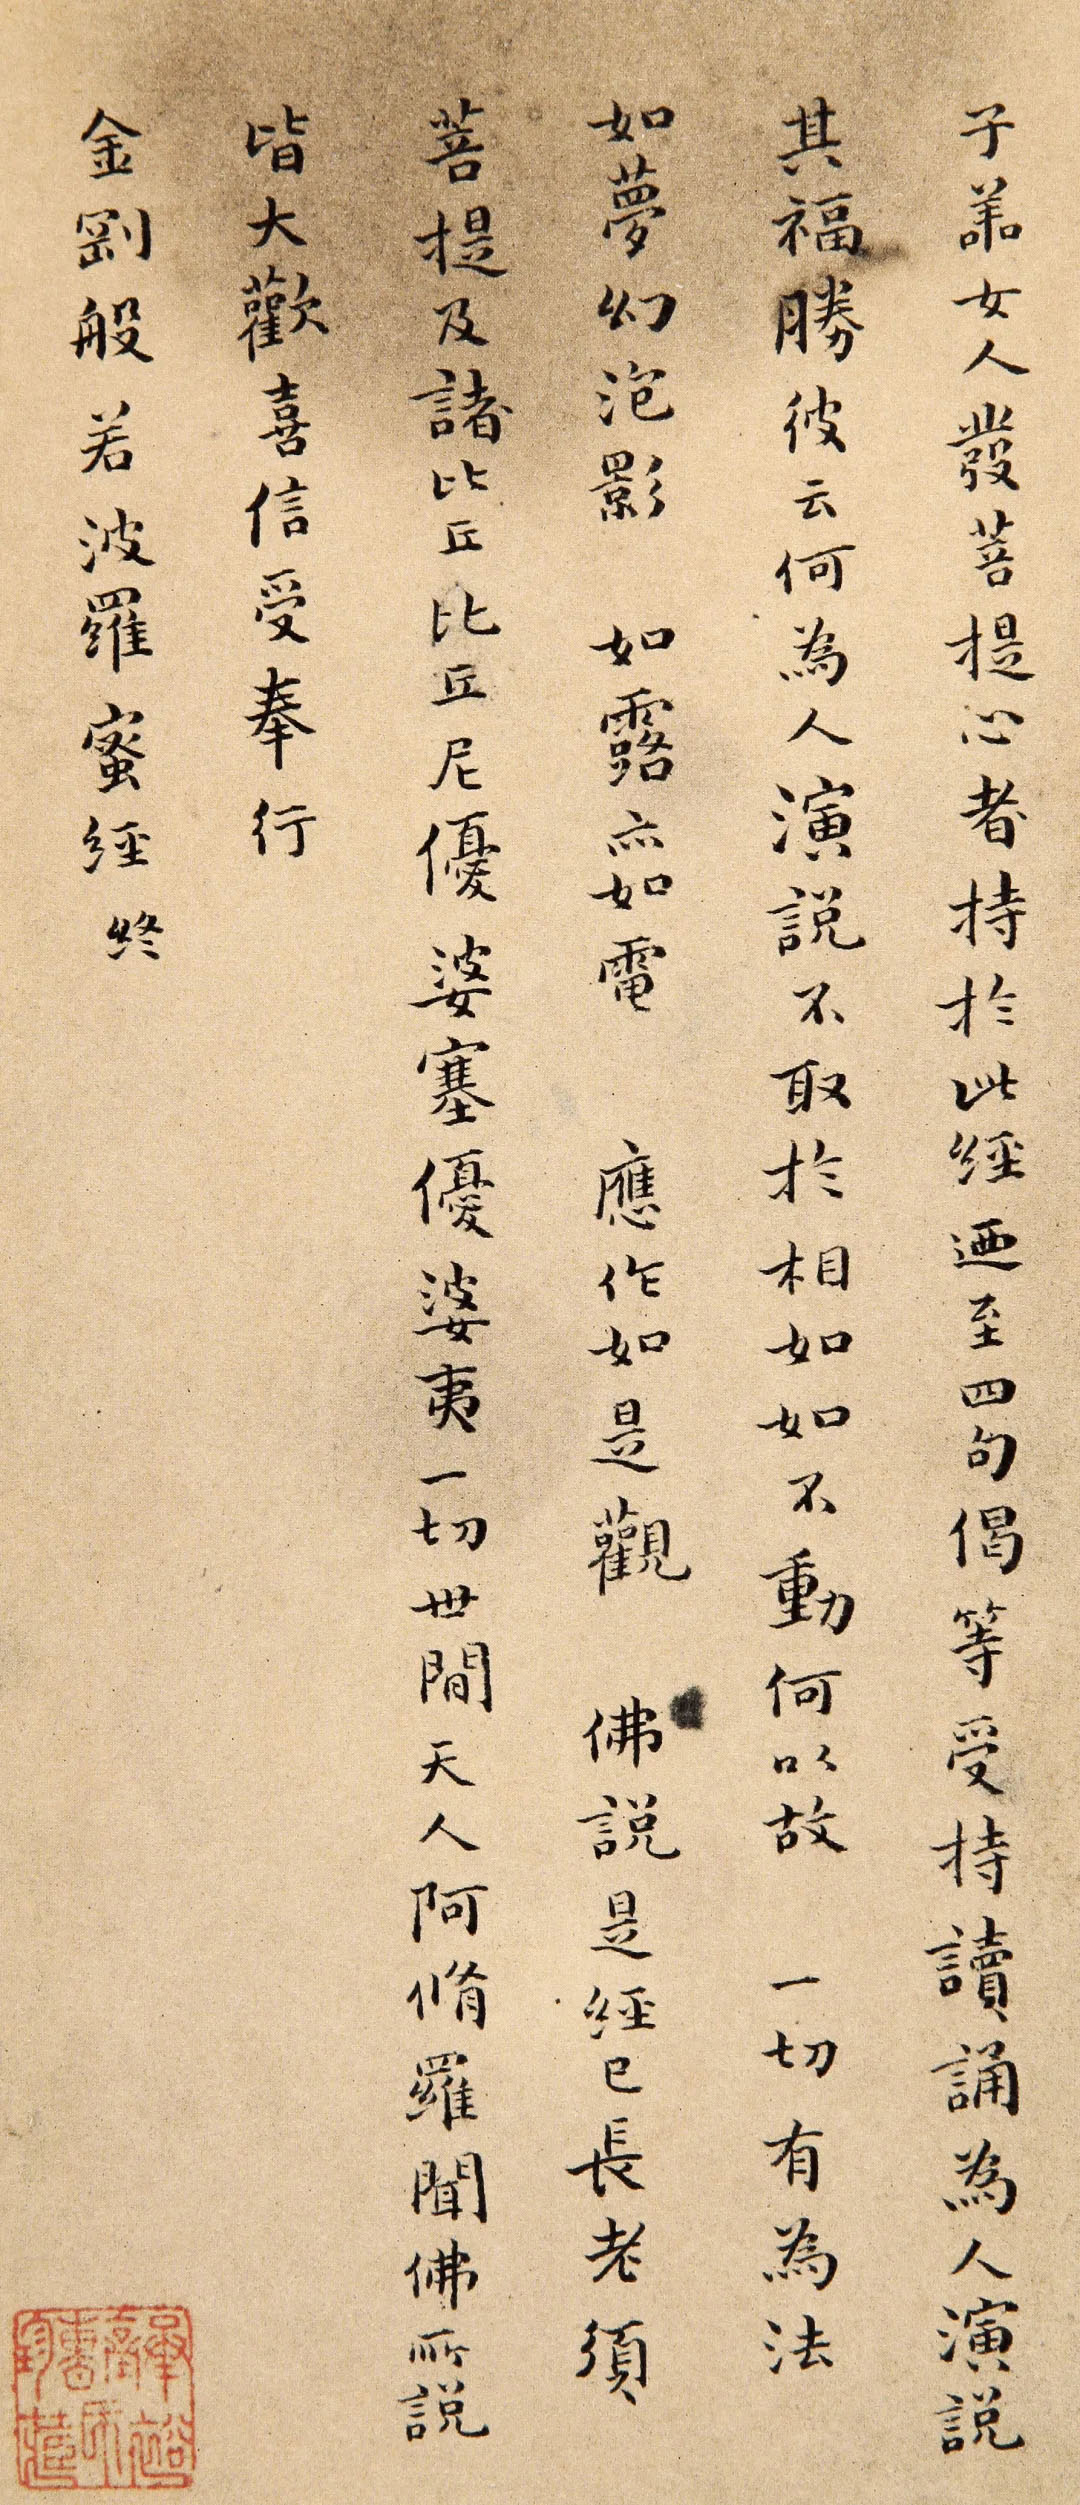 子苐女人發菩提心者持於此經迺至四句偈等受持讀誦為人演説
其福勝彼云何為人演説不取於相如如不動何以故　一切有為法
如夢幻泡影　如露亦如電　應作如是觀　佛説是經已長老須
菩提及諸比丘比丘尼優婆塞優婆夷一切世間天人阿脩羅聞佛所説
皆大歡喜信受奉行
金剛般若波羅蜜經 終